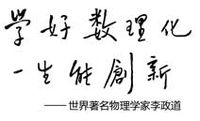 学好数理化
一生能創新
——世界著名物理学家李政道